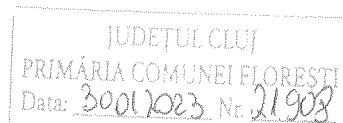 JUDEȚUL CLUJ
PRIMĂRIA COMUNEI FLOREȘTI
Data: 30012023 Nr. 21903